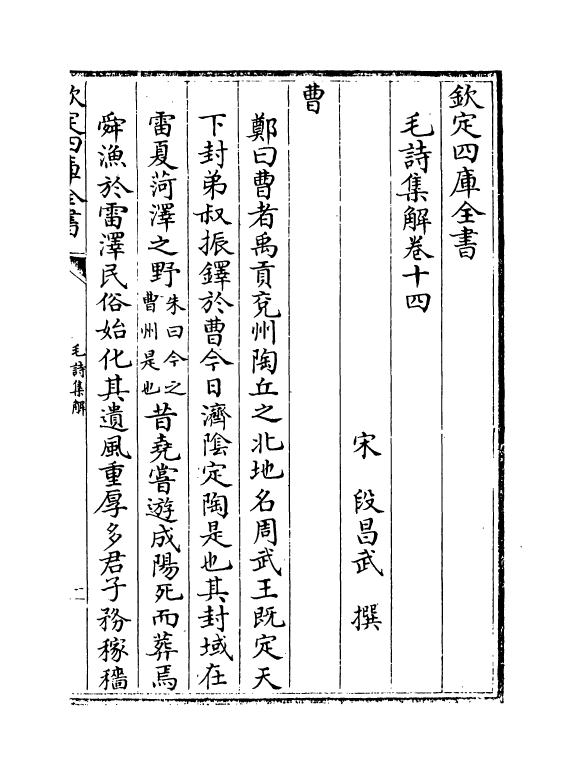 欽定四庫全書
毛詩集解卷十四
宋　段昌武　撰
曹
鄭曰曹者禹貢兗州陶丘之北地名周武王既定天
下封弟叔振鐸於曹今日濟陰定陶是也其封域在
雷夏菏澤之野朱曰今之曹州是也昔堯嘗遊成陽死而葬焉
舜漁於雷澤民俗始化其遺風重厚多君子務稼穡
欽定四庫全書
毛詩集解